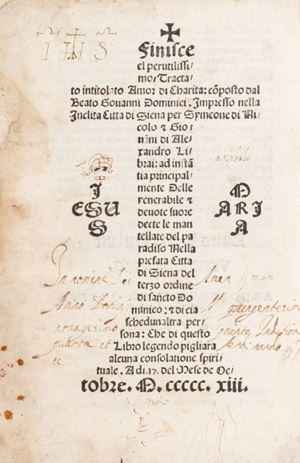 I H S
Finisce
el perutilissi-
mo, Tracta-
to intitolato Amor di Charita: cōposto dal
Beato Gouanni Dominici. Impresso nella
Inclita Citta di Siena per Symeone di Ni
colo & Gio
uāni di Ale
xandro Li
brai: ad instā
tia principal-
mente Delle
venerabile &
deuote suore
decte le man
tellate del pa
radiso Nella
prefata Citta
di Siena del
terzo ordine
di sancto Do
minico: & di cia
schedunaltra per-
sona: Che di questo
Libro legendo pigliara
alcuna consolatione spiri-
tuale. A di .17. del Mese de Oc-
tobre. M. CCCCC. xiii.
I
ESU
S
M
ARI
A
In nomine
Anno